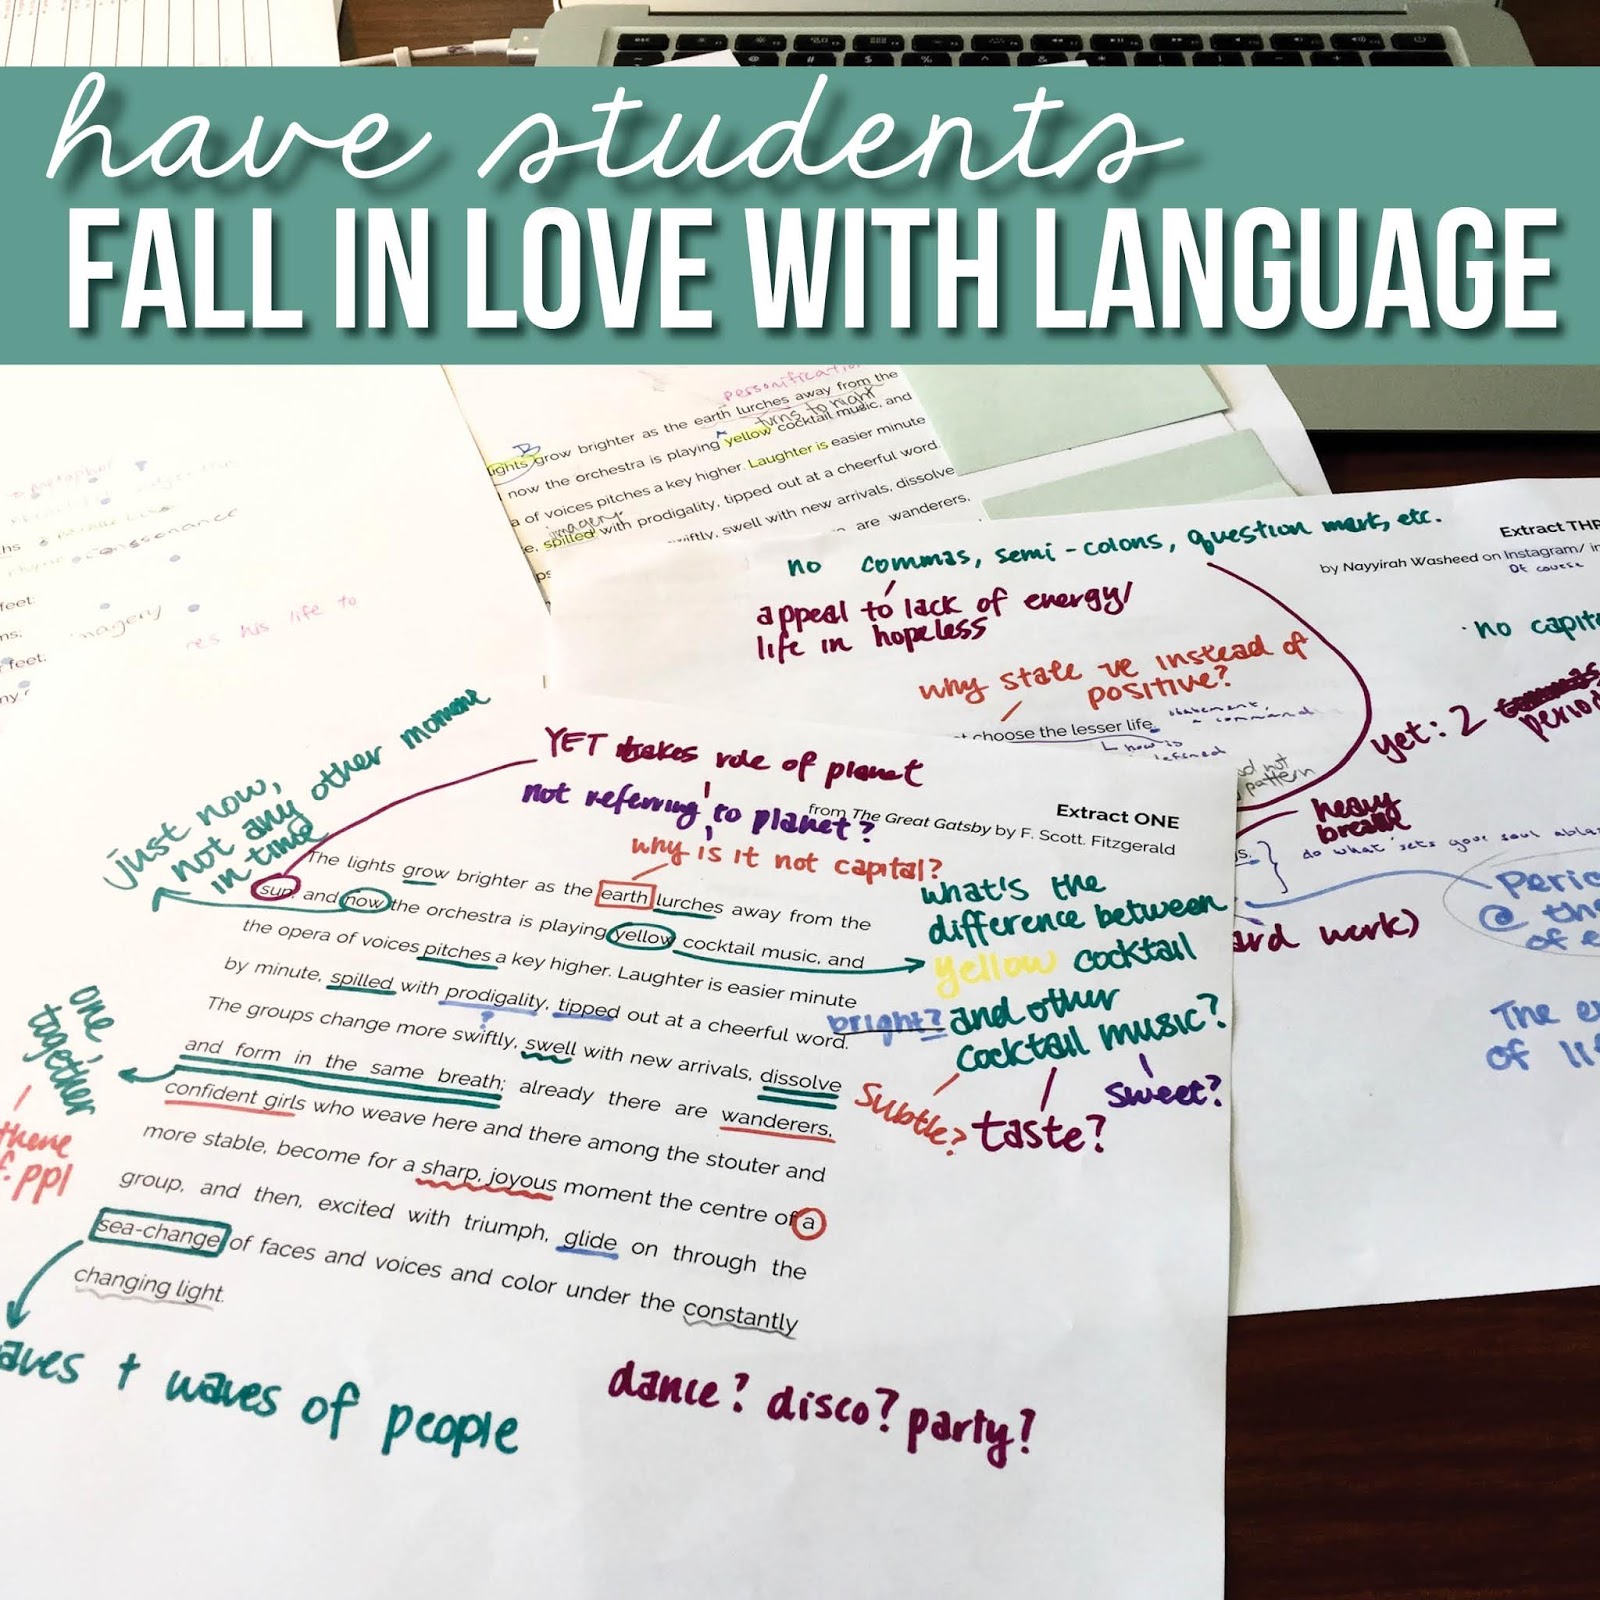 have students
FALL IN LOVE WITH LANGUAGE
personification
lights grow brighter as the earth lurches away from the
turns to night
now the orchestra is playing yellow cocktail music, and
B
a of voices pitches a key higher. Laughter is easier minute
imagery
e, spilled with prodigality, tipped out at a cheerful word.
swiftly, swell with new arrivals, dissolve
are wanderers,
metaphor
feet:
imagery
his life to
no commas, semi-colons, question mark, etc.
appeal to lack of energy/
life in hopeless
why state -ve instead of
positive?
choose the lesser life.
Extract THR
by Nayyirah Washeed on Instagram/ in
Of course
no capit
yet: 2
period
heavy
breath
do what sets your soul abla
Peric
@ the
of e
ard work)
The e
of li
just now,
not any other moment
in time
YET takes role of planet
not referring to planet?
why is it not capital?
Extract ONE
from The Great Gatsby by F. Scott. Fitzgerald
The lights grow brighter as the earth lurches away from the
sun, and now the orchestra is playing yellow cocktail music, and
the opera of voices pitches a key higher. Laughter is easier minute
by minute, spilled with prodigality, tipped out at a cheerful word.
The groups change more swiftly, swell with new arrivals, dissolve
and form in the same breath; already there are wanderers,
confident girls who weave here and there among the stouter and
more stable, become for a sharp, joyous moment the centre of a
group, and then, excited with triumph, glide on through the
sea-change of faces and voices and color under the constantly
changing light.
what's the
difference between
yellow cocktail
bright? and other
cocktail music?
subtle?
taste?
sweet?
one,
together
theme
f. ppl
aves + waves of people
dance? disco? party?